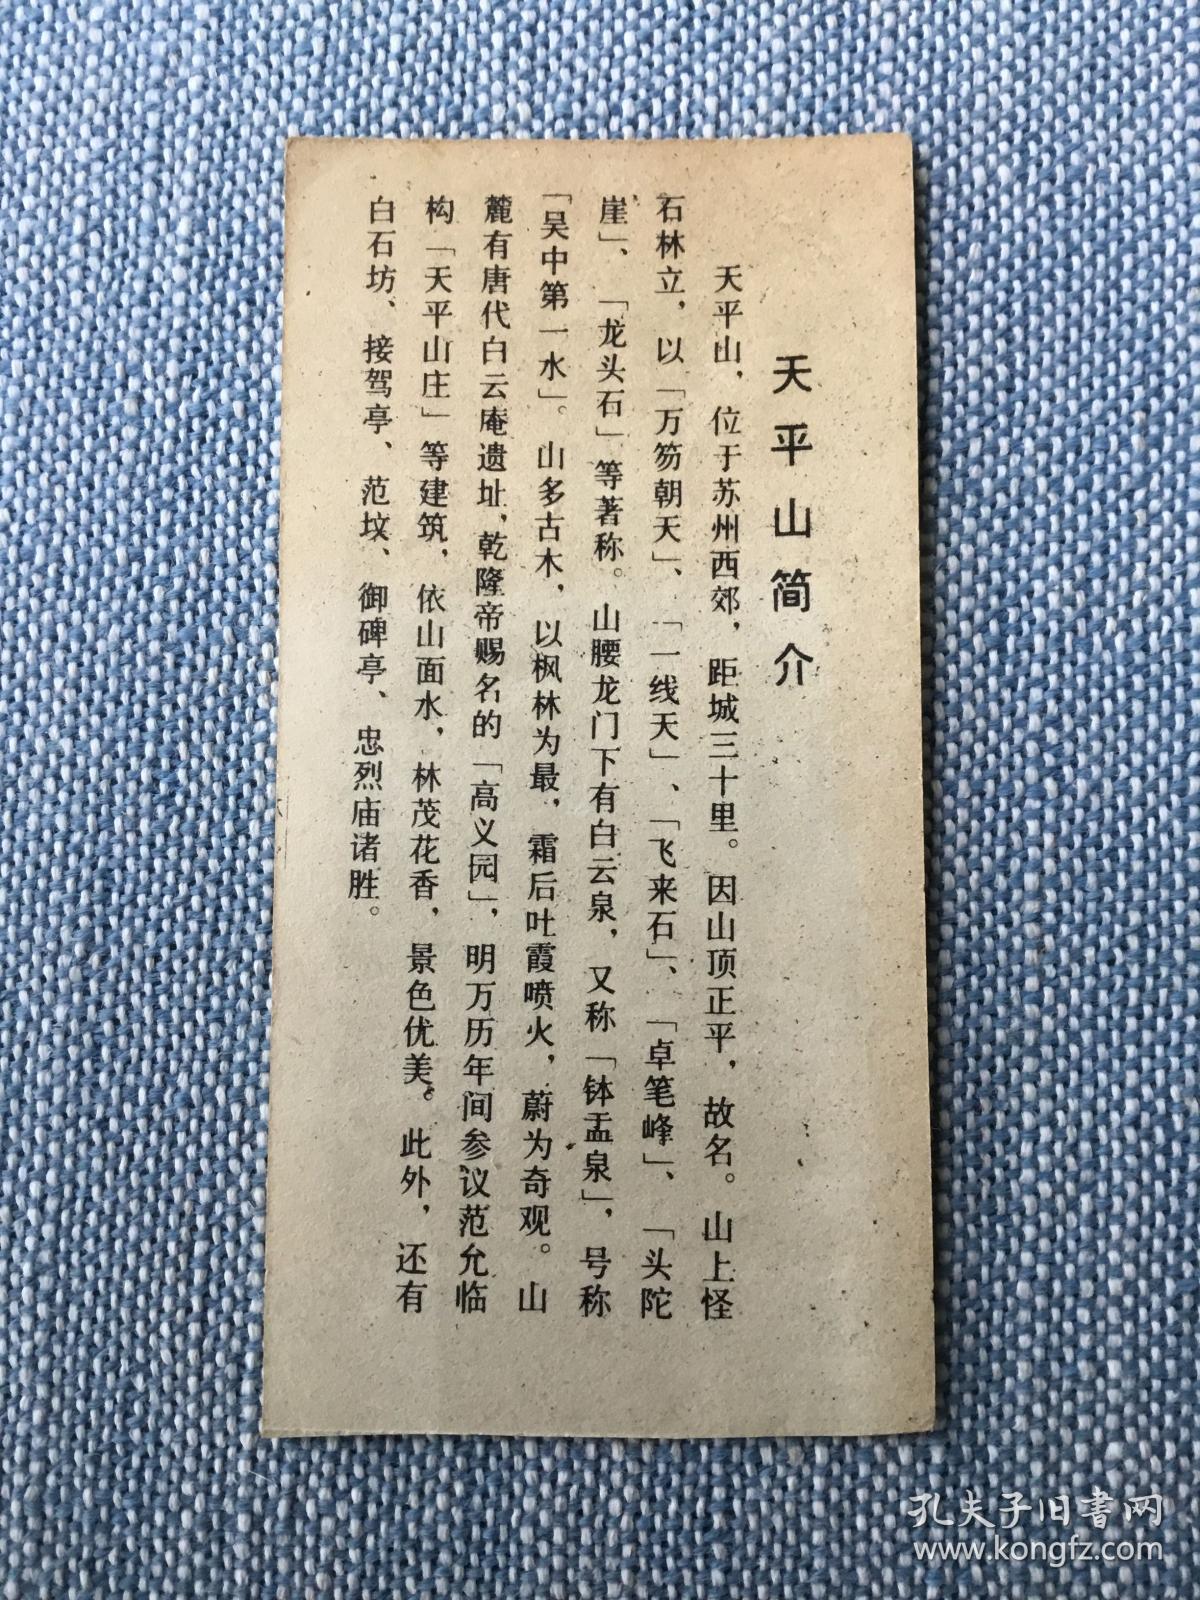 天平山简介
天平山，位于苏州西郊，距城三十里。因山顶正平，故名。山上怪
石林立，以「万笏朝天」、「一线天」、「飞来石」、「卓笔峰」、「头陀
崖」、「龙头石」等著称。山腰龙门下有白云泉，又称「钵盂泉」，号称
「吴中第一水」。山多古木，以枫林为最，霜后吐霞喷火，蔚为奇观。山
麓有唐代白云庵遗址，乾隆帝赐名的「高义园」，明万历年间参议范允临
构「天平山庄」等建筑，依山面水，林茂花香，景色优美。此外，还有
白石坊、接驾亭、范坟、御碑亭、忠烈庙诸胜。
孔夫子旧书网
www.kongfz.com